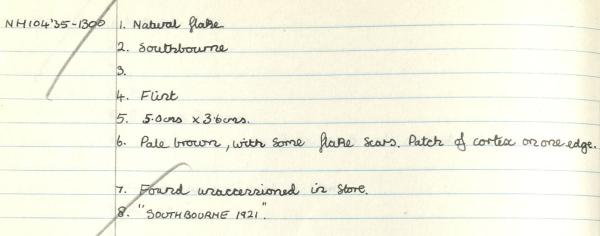 NH104'35-1300 1. Natural flake
2. Southbourne
3.
4. Flint
5. 5.0cms x 3.6cms.
6. Pale brown, with some flake scars. Patch of cortex on one edge.
7. Found unaccessioned in store.
8. "SOUTHBOURNE 1921".